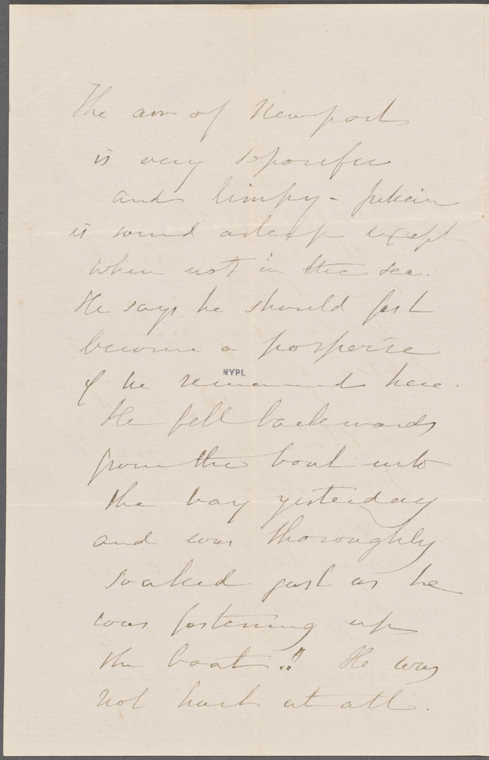 The air of Newport
is very soporific
and limpy - Julian
is sound asleep except
when not in the sea.
He says he should just
become a porpoise
if he remained here.
NYPL
He fell backwards
from the boat into
the bay yesterday
and was thoroughly
soaked just as he
was fastening up
the boat!! He was
not hurt at all.